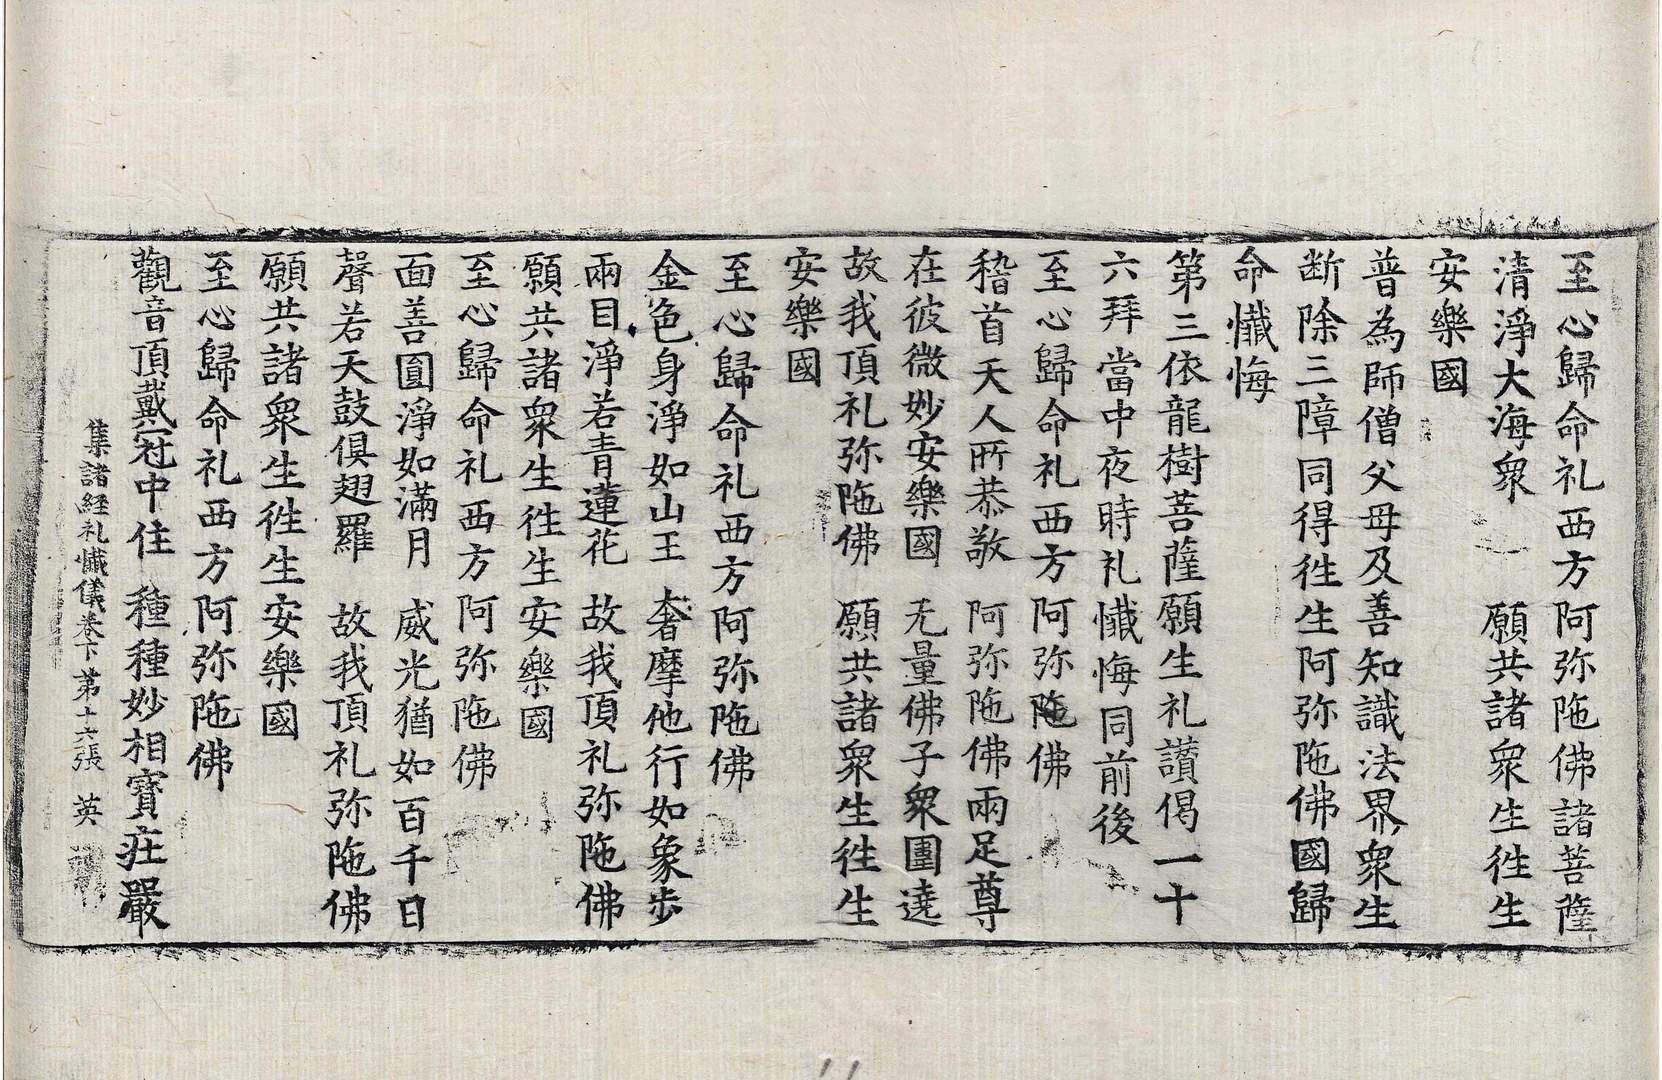 至心歸命礼西方阿弥陁佛諸菩薩
清淨大海衆　願共諸衆生徃生
安樂國
普為師僧父母及善知識法界衆生
断除三障同得徃生阿弥陁佛國歸
命懺悔
第三依龍樹菩薩願生礼讃偈一十
六拜當中夜時礼懺悔同前後
至心歸命礼西方阿弥陁佛
稽首天人所恭敬　阿弥陁佛兩足尊
在彼微妙安樂國　无量佛子衆圍遶
故我頂礼弥陁佛　願共諸衆生徃生
安樂國
至心歸命礼西方阿弥陁佛
金色身淨如山王　奢摩他行如象歩
兩目淨若青蓮花　故我頂礼弥陁佛
願共諸衆生徃生安樂國
至心歸命礼西方阿弥陁佛
面善圓淨如滿月　威光猶如百千日
聲若天鼓俱翅羅　故我頂礼弥陁佛
願共諸衆生徃生安樂國
至心歸命礼西方阿弥陁佛
觀音頂戴冠中住　種種妙相寳莊嚴
集諸経礼懺儀卷下第十六張　英